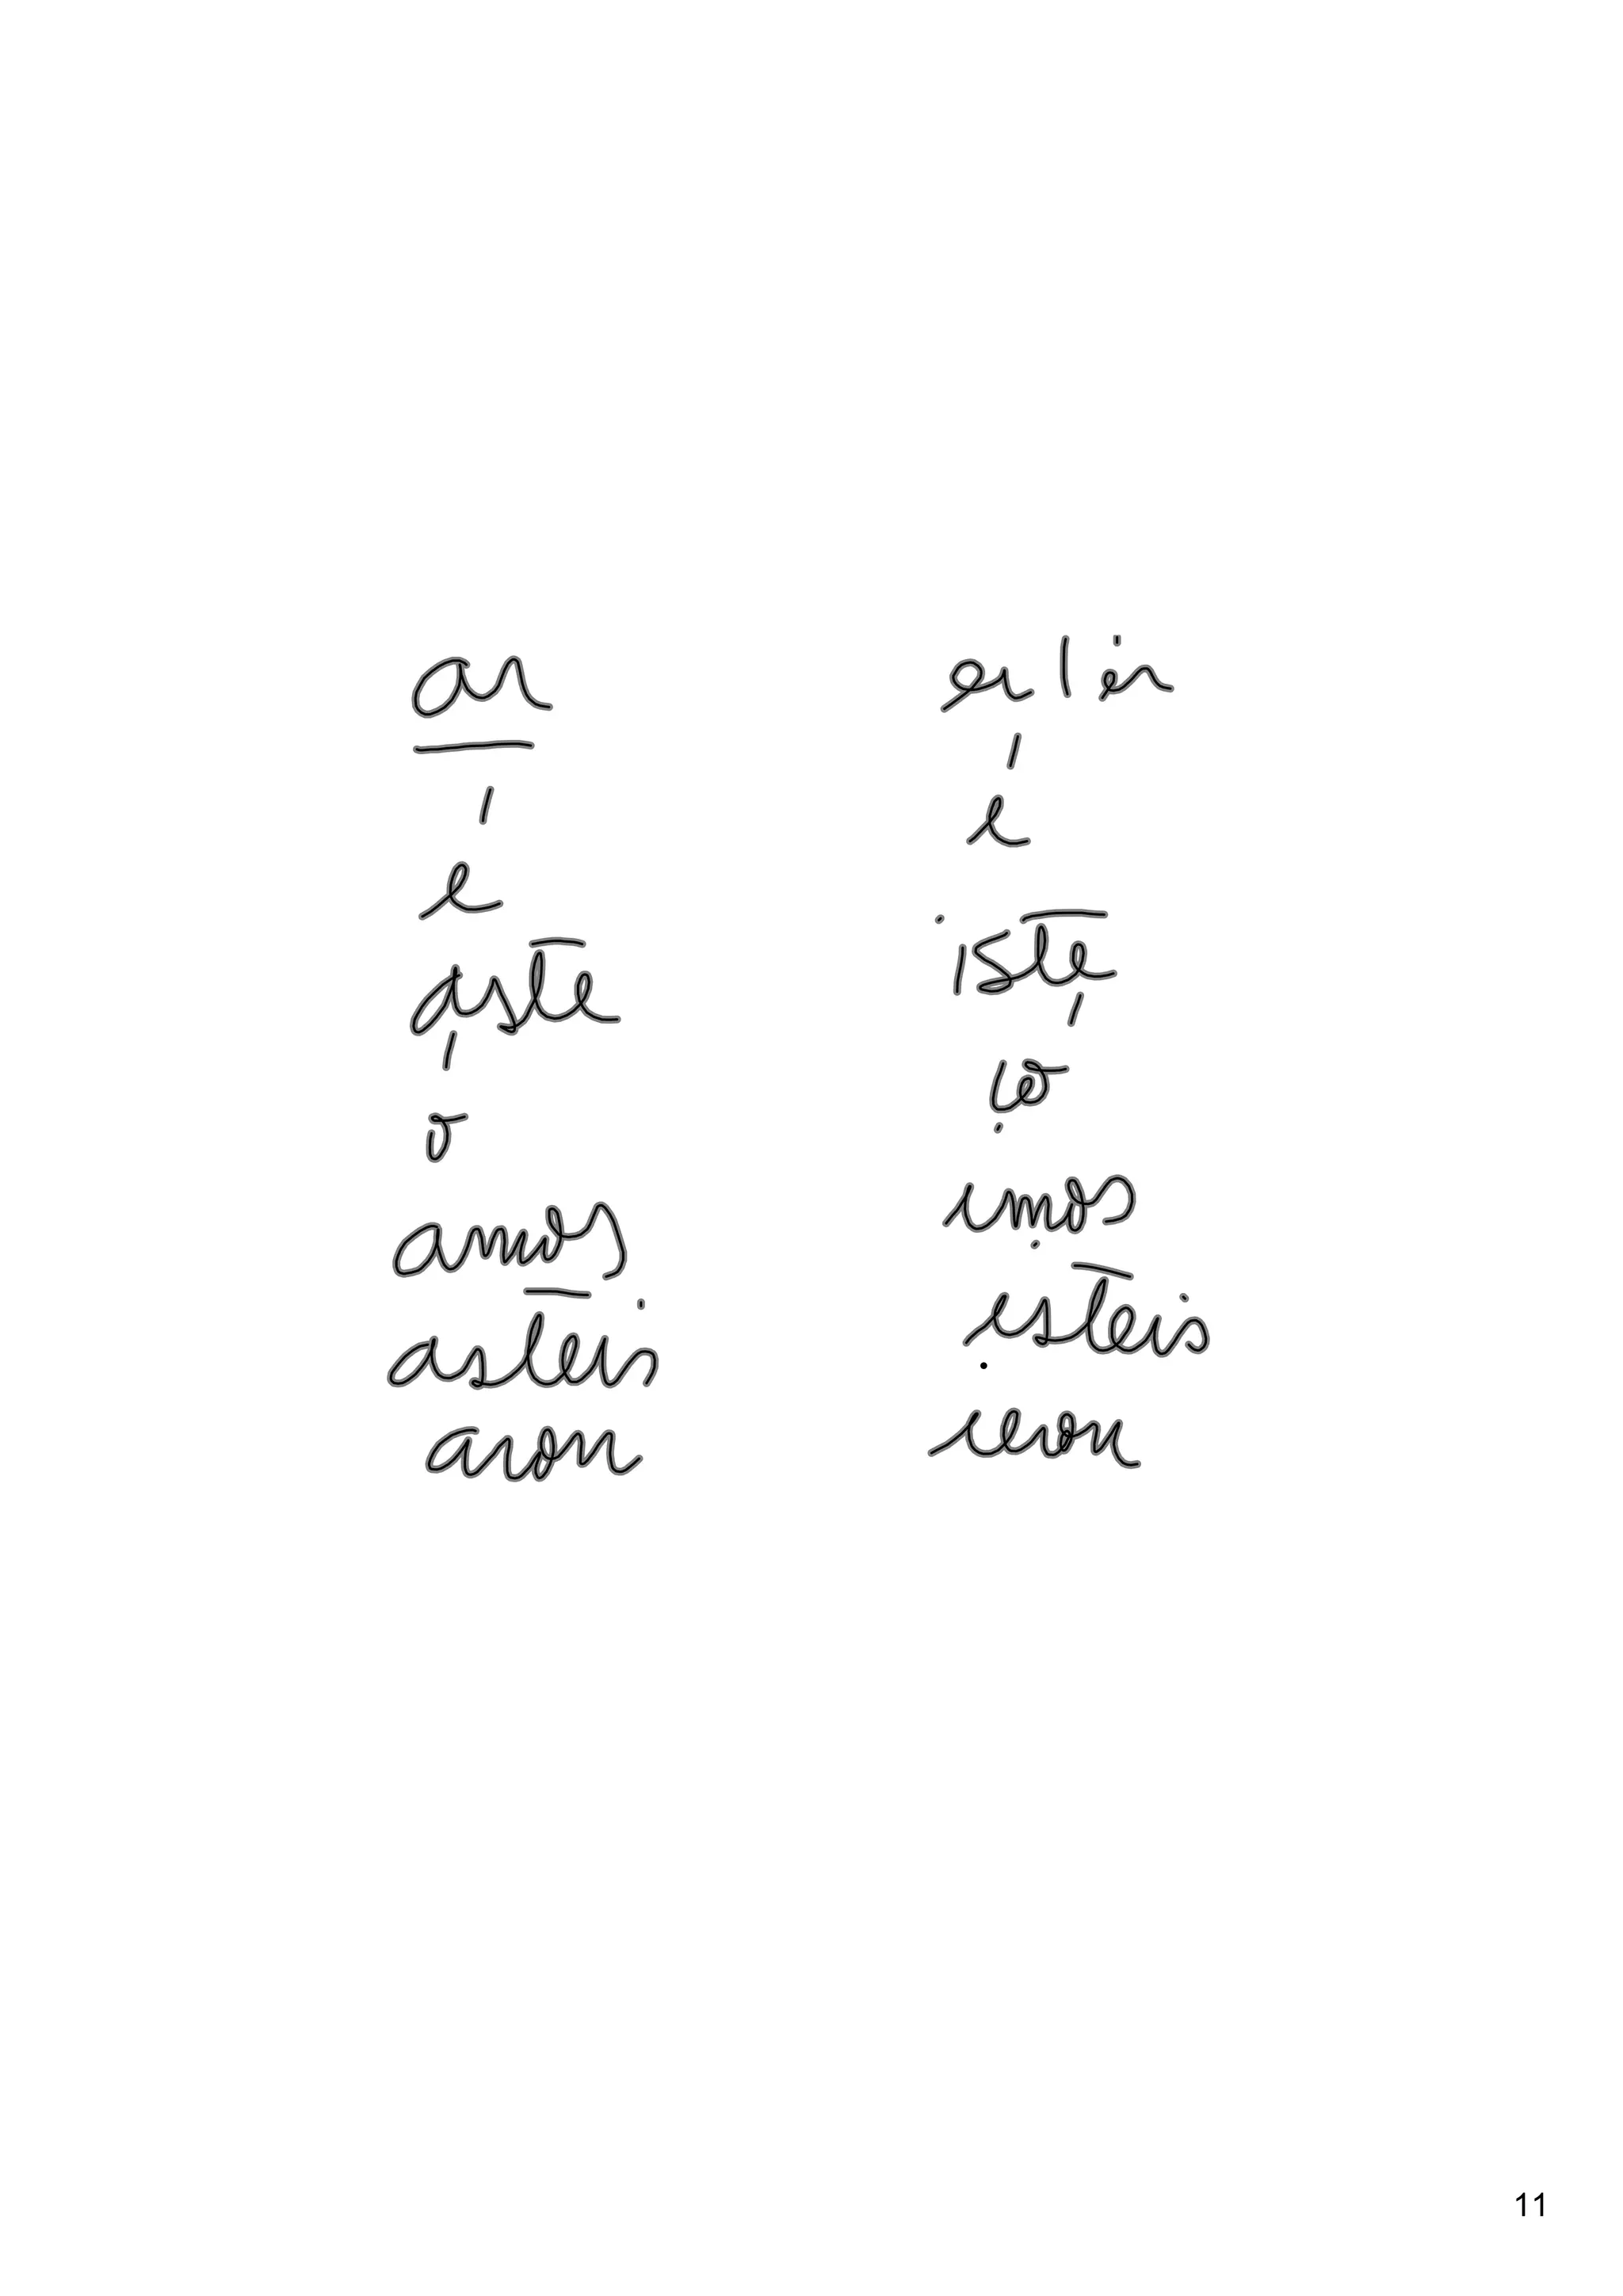 ar
é
aste
ó
amos
asteis
aron
er/ir
é
iste
ió
imos
isteis
ieron
11